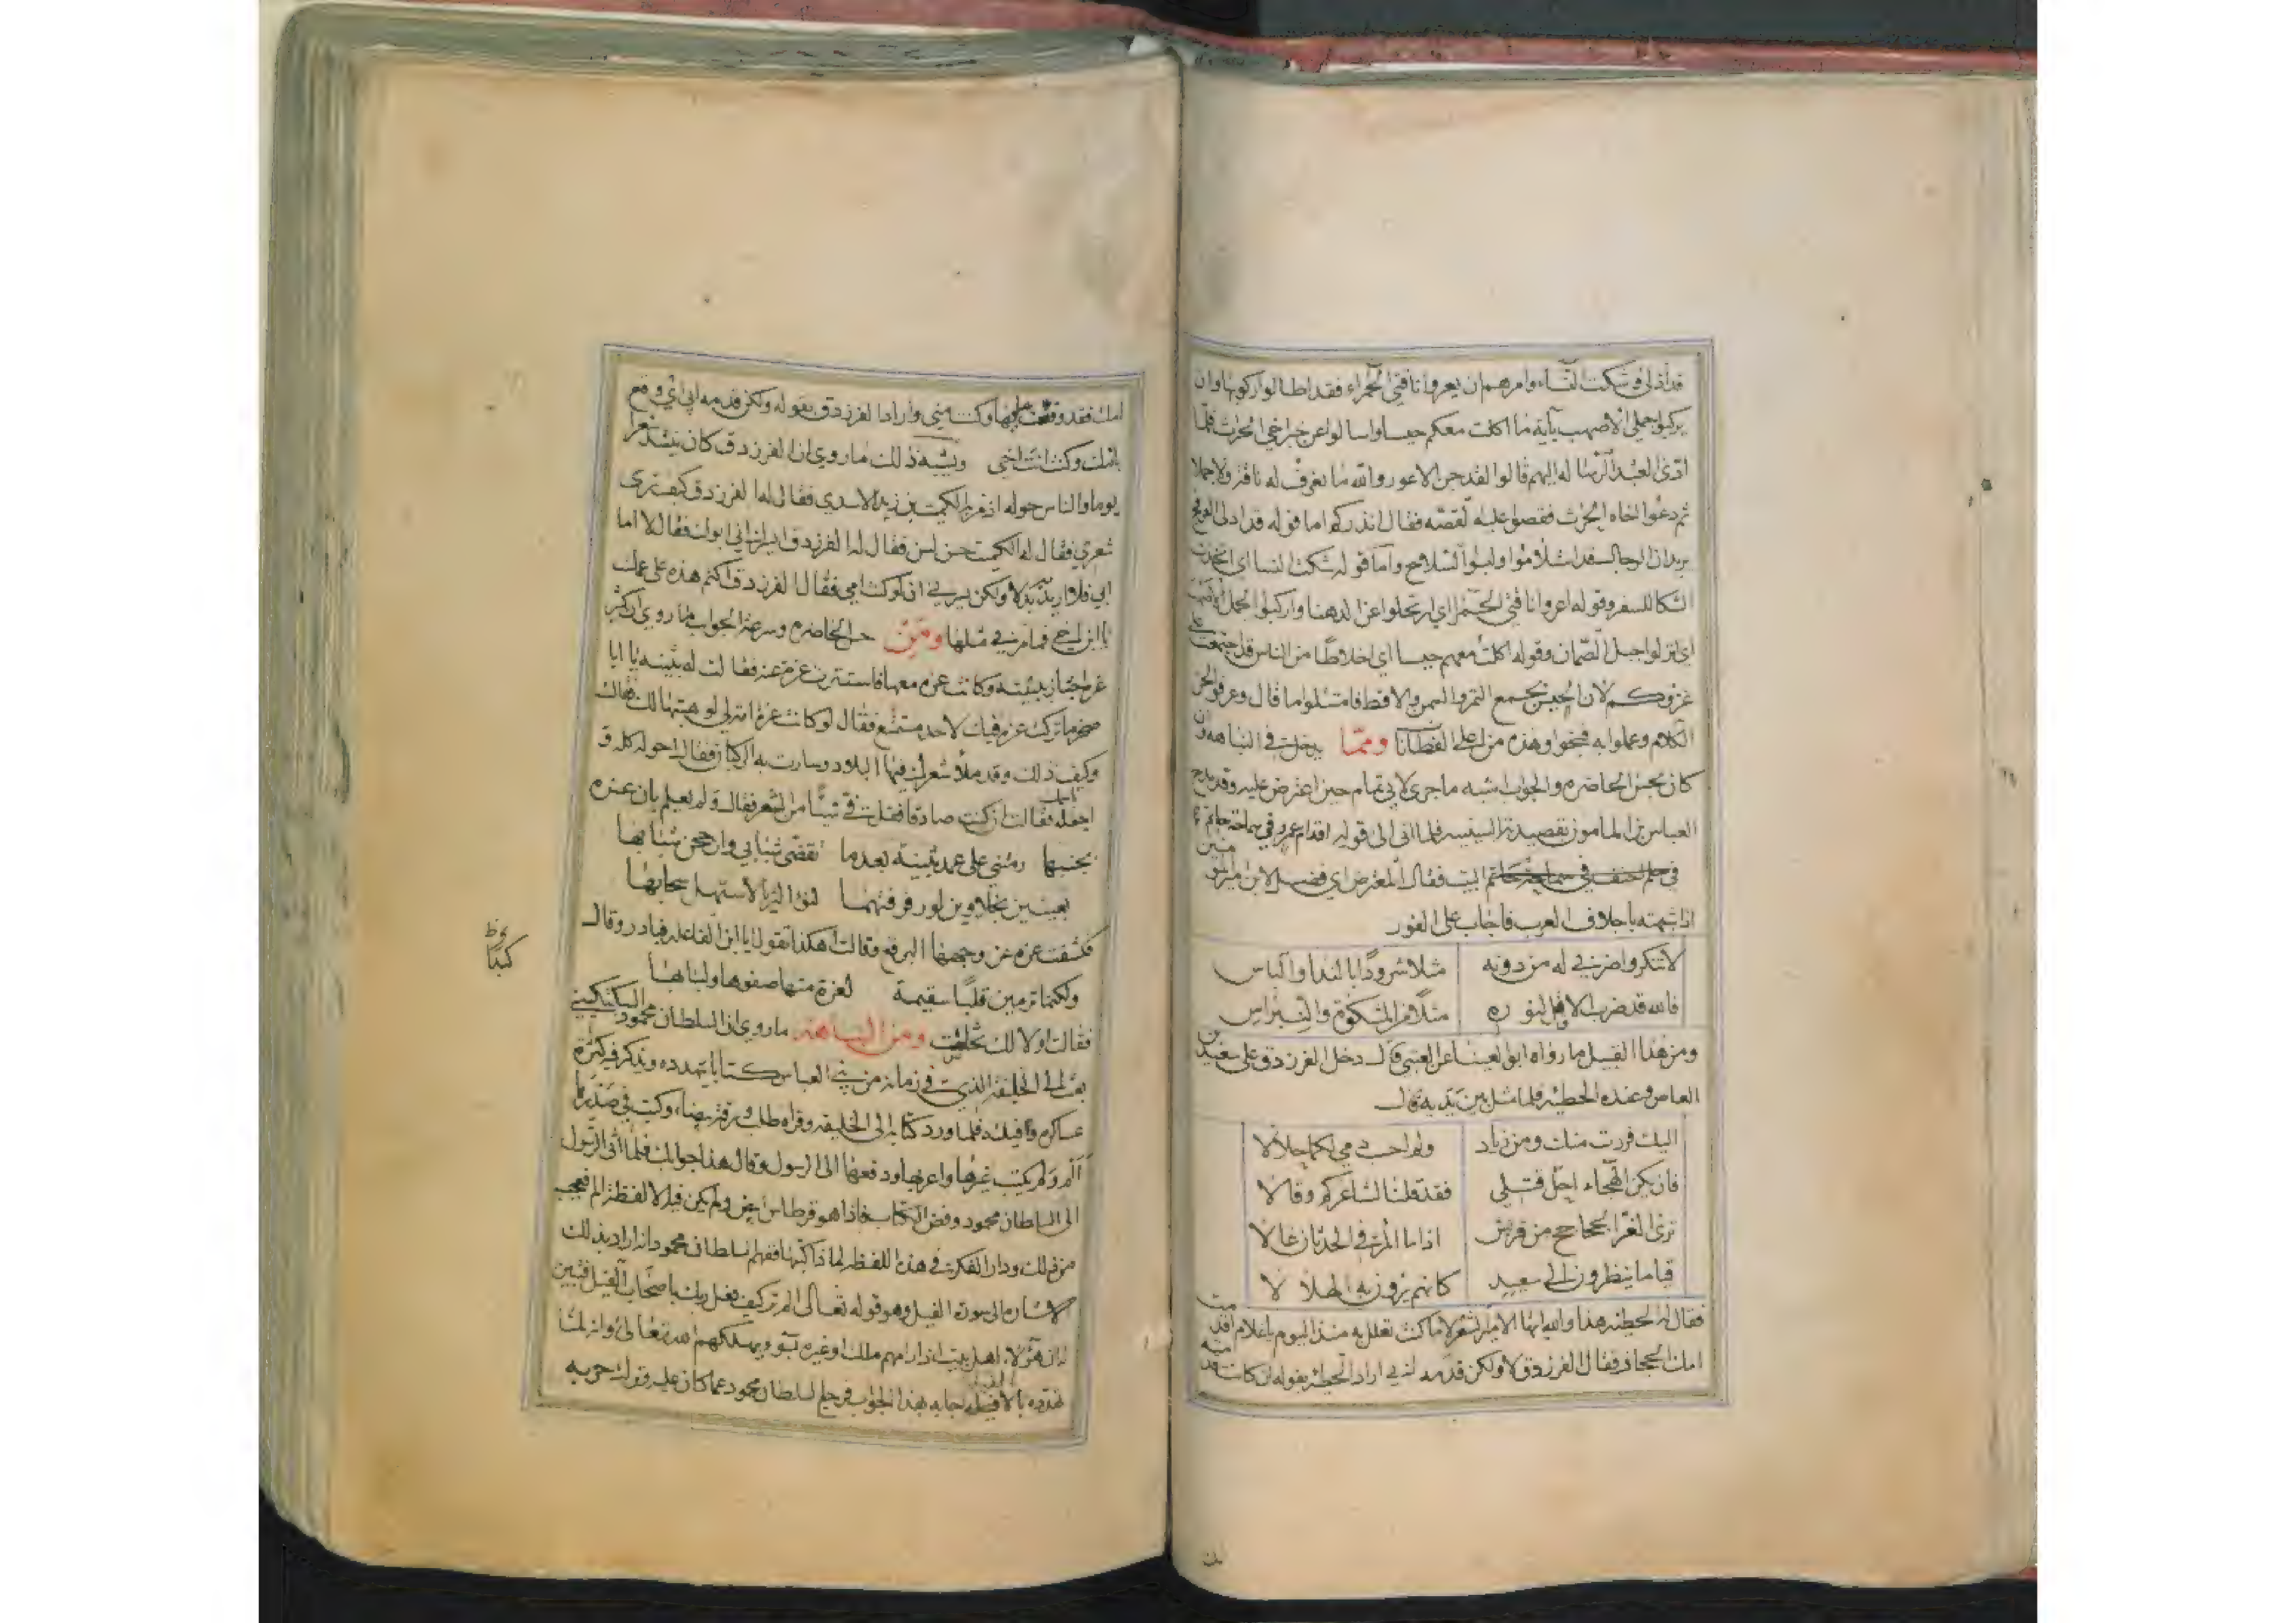 قد أدلى وشكت النساء وامرهم ان يعروا ناقتي الحمراء فقد اطالوا ركوبها وان
يركبوا جملي الاصهب بآية ما اكلت معكم حيسا واسالوا عن خبري اخي الحرث فلما
ادّى العبد الرسالة اليهم قالوا لقد جن الاعور والله ما نعرف له ناقة ولا جملا
ثم دعوا اخاه الحرث فقصوا عليه القصه فقال انذركم اما قوله قد ادلى العرفج
يريد ان الرجال قد استلاموا ولبسوا السلاح واما قوله شكت النسا اي اتخذت
الشكا للسفر وقوله اعروا ناقتي الحمرا اي ارتحلوا عن الدهنا واركبوا الجمل الاصهب
اي انزلوا جبل الصمان وقوله اكلت معهم حيسا اي اخلاطا من الناس قد اجتمعت على
غزوكم لان الحيس يجمع التمر والسمن والاقط فامتثلوا ما قال وعرفوا لحن
الكلام وعملوا به فنجوا وهذه من اعلى الفطانا وممّا يدخل في النباهه وان
كان بحسن المحاضره والجواب اشبه ما جرى لابي تمام حين اعترض عليه وقد مدح
العباس بن المامون بقصيدته السينيه فلما انتهى الى قوله اقدام عمرو في سماحة حاتم
في حلم احنف في سماحة حاتم البيت فقال المعترض اي فضل لابن امير المومنين
اذا شبهته باجلاف العرب فاجاب على الفور
لا تنكروا ضربي له من دونه مثلا شرودا بالندا والباس
فالله قد ضرب الاقل لنوره مثلا من المشكوة والنبراس
ومن هذا القبيل ما رواه ابو العينا عن العتبي قال دخل الفرزدق على سعيد بن
العاص وعنده الحطيئه فلما مثل بين يديه قال
اليك فررت منك ومن زياد ولم احسب دمي لكما حلالا
فان يكن الهجاء احل قتلي فقد قلنا لشاعركم وقالا
ترى الغر الجحاجح من قريش اذا ما الامر في الحدثان غالا
قياما ينظرون الى سعيد كانهم يرون به الهلالا
فقال له الحطيئه هذا والله ايها الامير الشعر لا ما كنت تعلل به منذ اليوم يا غلام اقدمت
امك الحجاز فقال الفرزدق لا ولكن قدمه ابي اراد الحطيئه بقوله ان كانت قدمت
امك فقد وقعت عليها وكنت مني واراد الفرزدق بقوله ولكن قدمه ابي اي وقع
بامك وكنت انت اخي ويشبه ذلك ما روي ان الفرزدق كان ينشد شعرا
يوما والناس حوله اذ مر به الكميت بن زيد الاسدي فقال له الفرزدق كيف ترى
شعري فقال له الكميت حسن فقال له الفرزدق ايسرك اني ابوك فقال لا اما
ابي فلا اريد به بدلا ولكن يسرني ان لو كنت امي فقال الفرزدق اكتم هذه على عمك
يا ابن اخي فما مر بي مثلها ومن حسن المحاضره وسرعة الجواب ما روي ان كثير
عزه اجتاز ببثينه وكانت عزه معها فاستترت عزه عنه فقالت له بثينه يا ابا
صخر ما تركت عزه فيك لاحد مستمتع فقال لو كانت عزة امة لي لوهبتها لك فقالت
وكيف ذلك وقد ملأ شعرك فيها البلاد وسارت به الركبان فقال احوله كله و
اجعله فيك فقالت ان كنت صادقا فقل في شيئا من الشعر فقال ولم يعلم بان عزه
بجنبها رمتني على عمد بثينة بعدما تقضى شبابي وارجحن شبابها
بعينين نجلاوين لو رقرقتهما لنوء الثريا لاستهل سحابها
فكشفت عزه عن وجهها البرقع وقالت اهكذا تقول يا ابن الفاعله فبادر وقال
ولكنما ترمين قلبا سقيمة لعزة منها صفوها ولبابها
فقالت اولا لك تخلصت ومن النباهة ما روي ان السلطان محمود السبكتكيني
بعث الى الخليفة الذي في زمانه من بني العباس كتابا يتهدده ويذكر فيه كثرة
عساكره وافياله فلما ورد كتابه الى الخليفه وقراه طلب ورقة بيضاء وكتب في صدرها
الم ولم يكتب غيرها واعربها ودفعها الى الرسول وقال هذا جوابك فلما اتى الرسول
الى السلطان محمود وفض الكتاب فاذا هو قرطاس ابيض ولم يكن فيه الا لفظة الم فتعجب
من ذلك ودار الفكرة في هذه اللفظه لماذا كتبها ففهم السلطان محمود انه اراد بذلك
الاشاره الى سورة الفيل وهو قوله تعالى الم تر كيف فعل ربك باصحاب الفيل فتبين
ان هؤلاء اهل بيت اذا رامهم ملك او غيره بسوء يهلكهم الله تعالى وانه لما
تهدده بالافيله اجابه بهذا الجواب فرجع السلطان محمود عما كان عليه وترك حربه